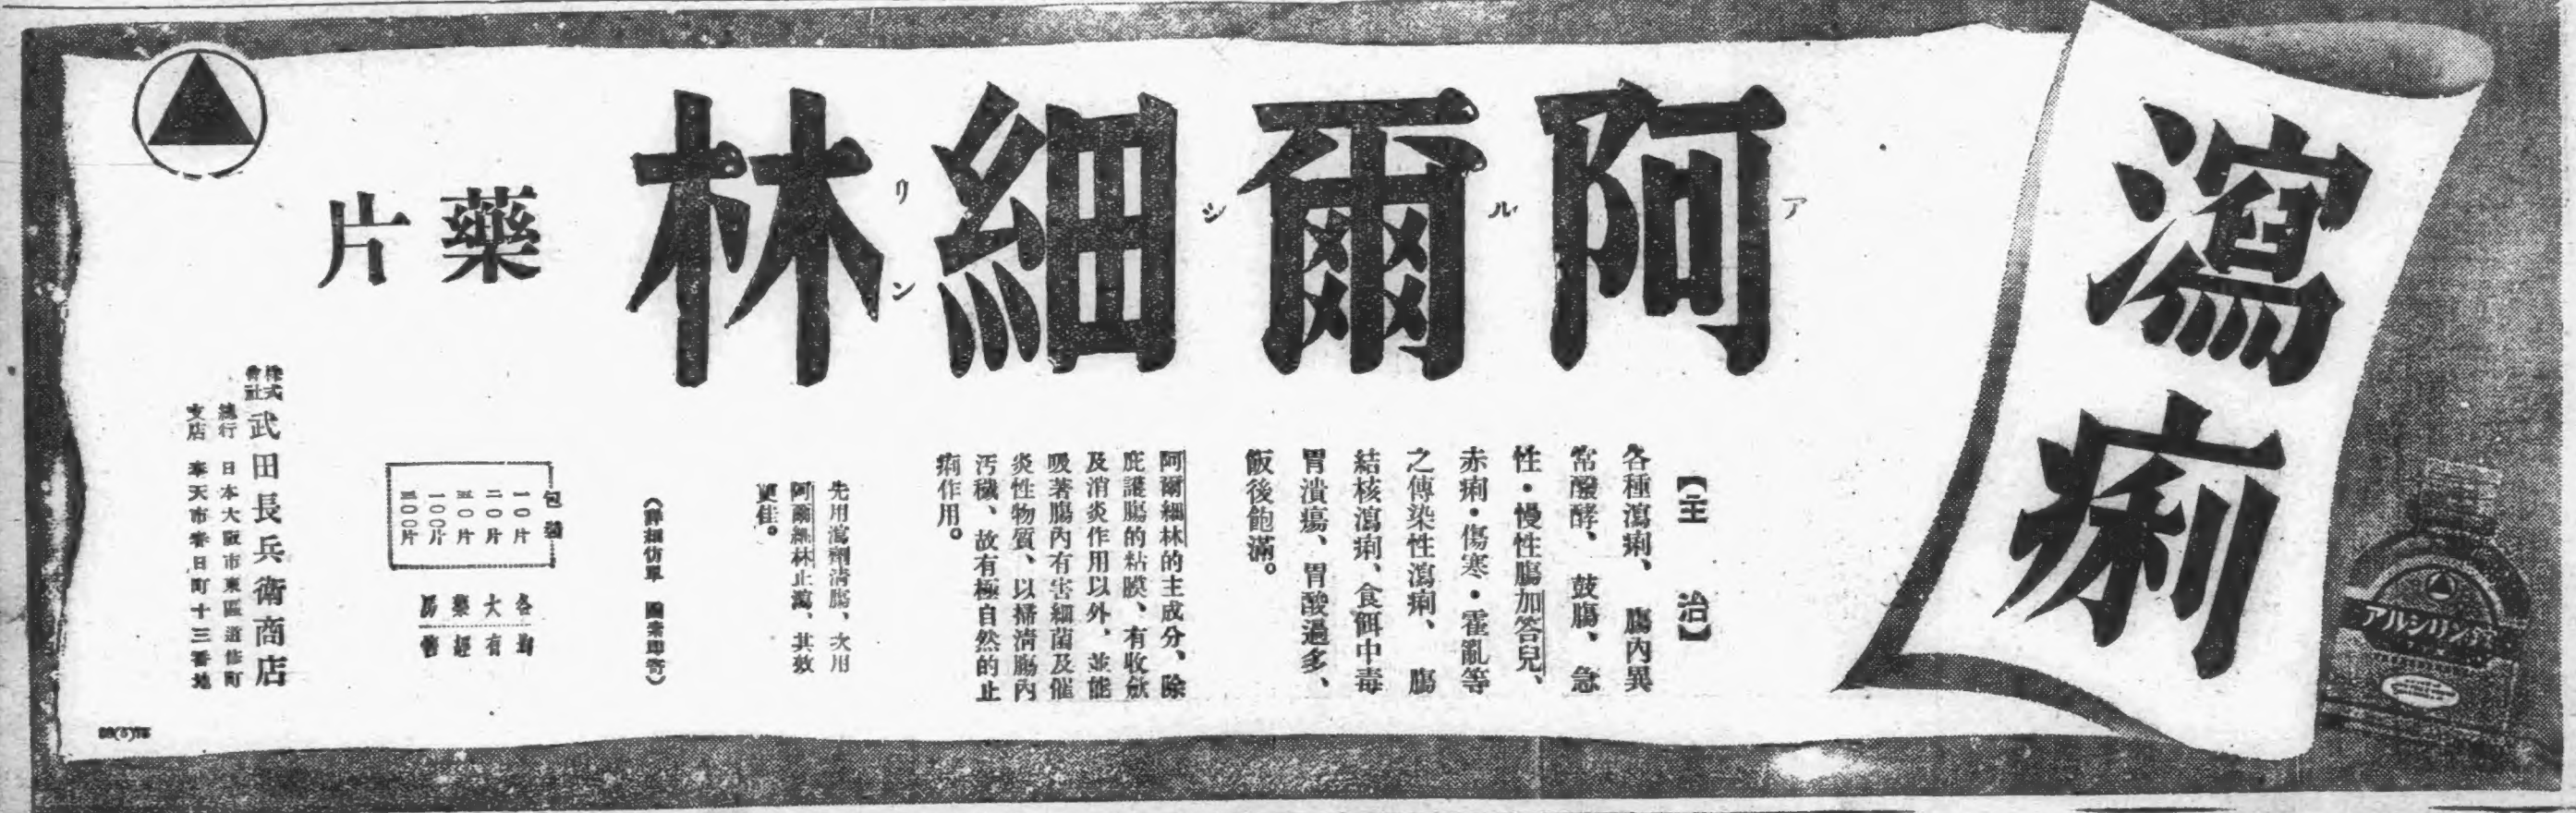 瀉痢
阿爾細林
アルシリン
藥片
【主治】
各種瀉痢、腸內異
常醱酵、鼓腸、急
性・慢性腸加答兒、
赤痢・傷寒・霍亂等
之傳染性瀉痢、腸
結核瀉痢、食餌中毒
胃潰瘍、胃酸過多、
飯後飽滿。
阿爾細林的主成分、除
庇護腸的粘膜、有收斂
及消炎作用以外、並能
吸著腸內有害細菌及催
炎性物質、以掃清腸內
污穢、故有極自然的止
痢作用。
先用瀉劑清腸、次用
阿爾細林止瀉、其效
更佳。
(詳細仿單 函索即寄)
包裝
一〇片
二〇片
五〇片
一〇〇片
五〇〇片
各大藥房
均有經售
株式會社 武田長兵衛商店
總行 日本大阪市東區道修町
支店 奉天市春日町十三番地
アルシリン錠